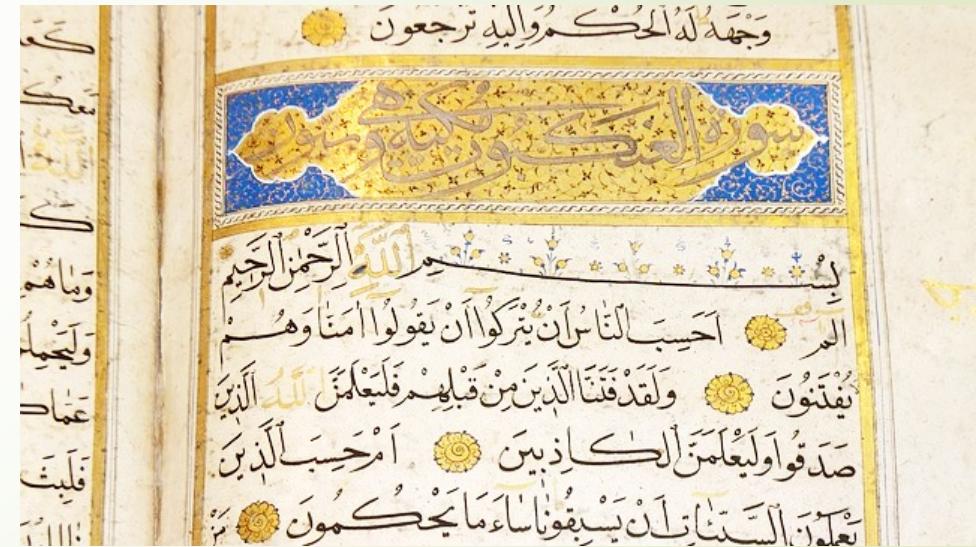 وَجْهَهُ لَهُ الْحُكْمُ وَإِلَيْهِ تُرْجَعُونَ
سورة العنكبوت مكية وهي
بِسْمِ اللَّهِ الرَّحْمَٰنِ الرَّحِيمِ
الم اَحَسِبَ النَّاسُ اَنْ يُتْرَكُوا اَنْ يَقُولُوا اٰمَنَّا وَهُمْ
لَا يُفْتَنُونَ وَلَقَدْ فَتَنَّا الَّذِينَ مِنْ قَبْلِهِمْ فَلَيَعْلَمَنَّ اللَّهُ الَّذِينَ
صَدَقُوا وَلَيَعْلَمَنَّ الْكَاذِبِينَ اَمْ حَسِبَ الَّذِينَ
يَعْمَلُونَ السَّيِّئَاتِ اَنْ يَسْبِقُونَا سَاءَ مَا يَحْكُمُونَ مَنْ
وَمَا هُمْ
وَلَيَحْمِلُ
عَمَّا كَا
فَلَبِثَ